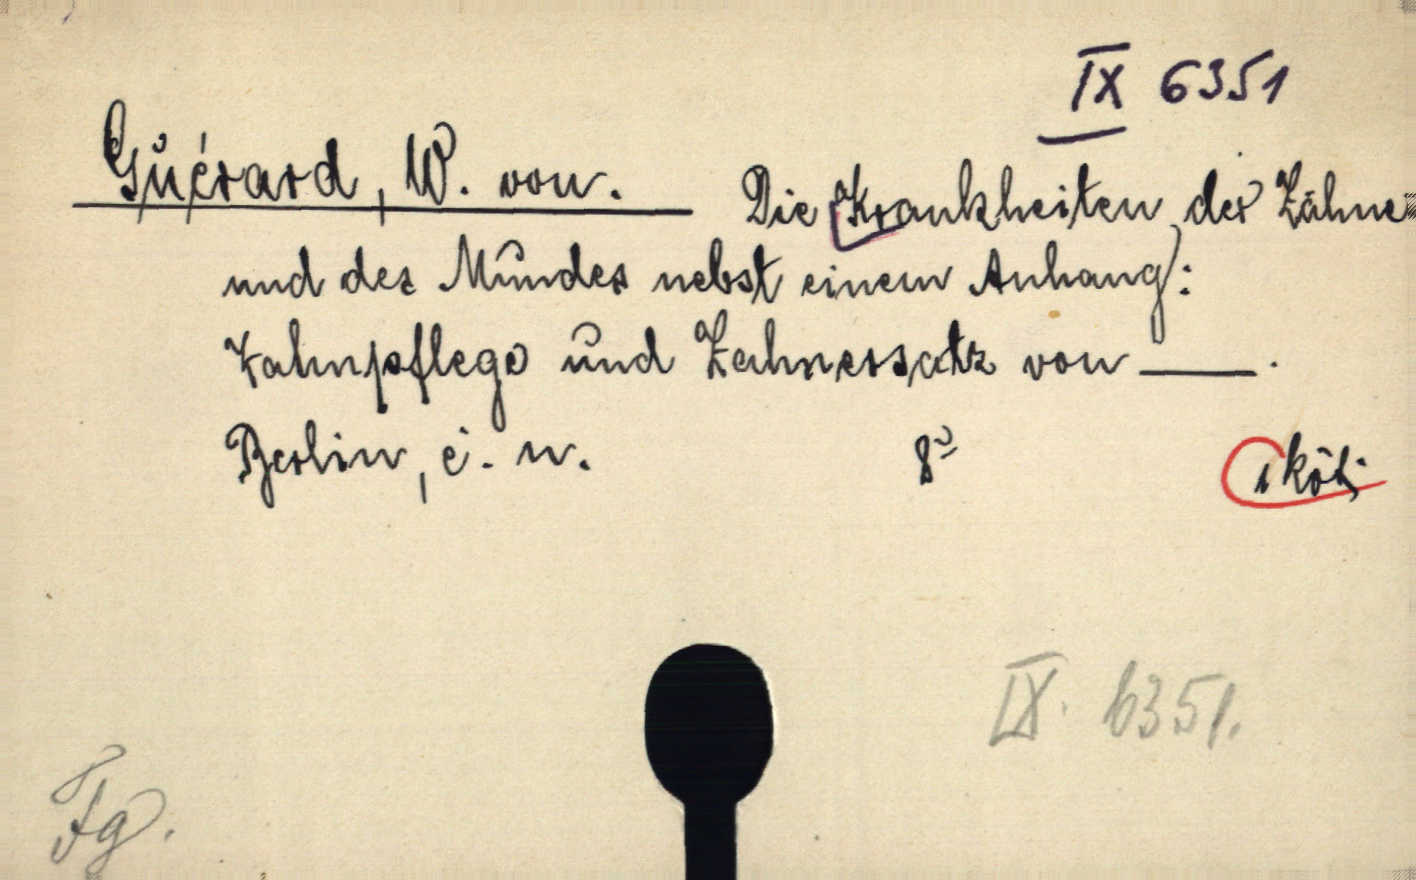 IX 6351
Guérard, W. von. Die Krankheiten der Zähne
und des Mundes nebst einem Anhang:
Zahnpflege und Zahnersatz von ——.
Berlin, é. n. 8º 1 köt.
IX. 6351.
Fg.